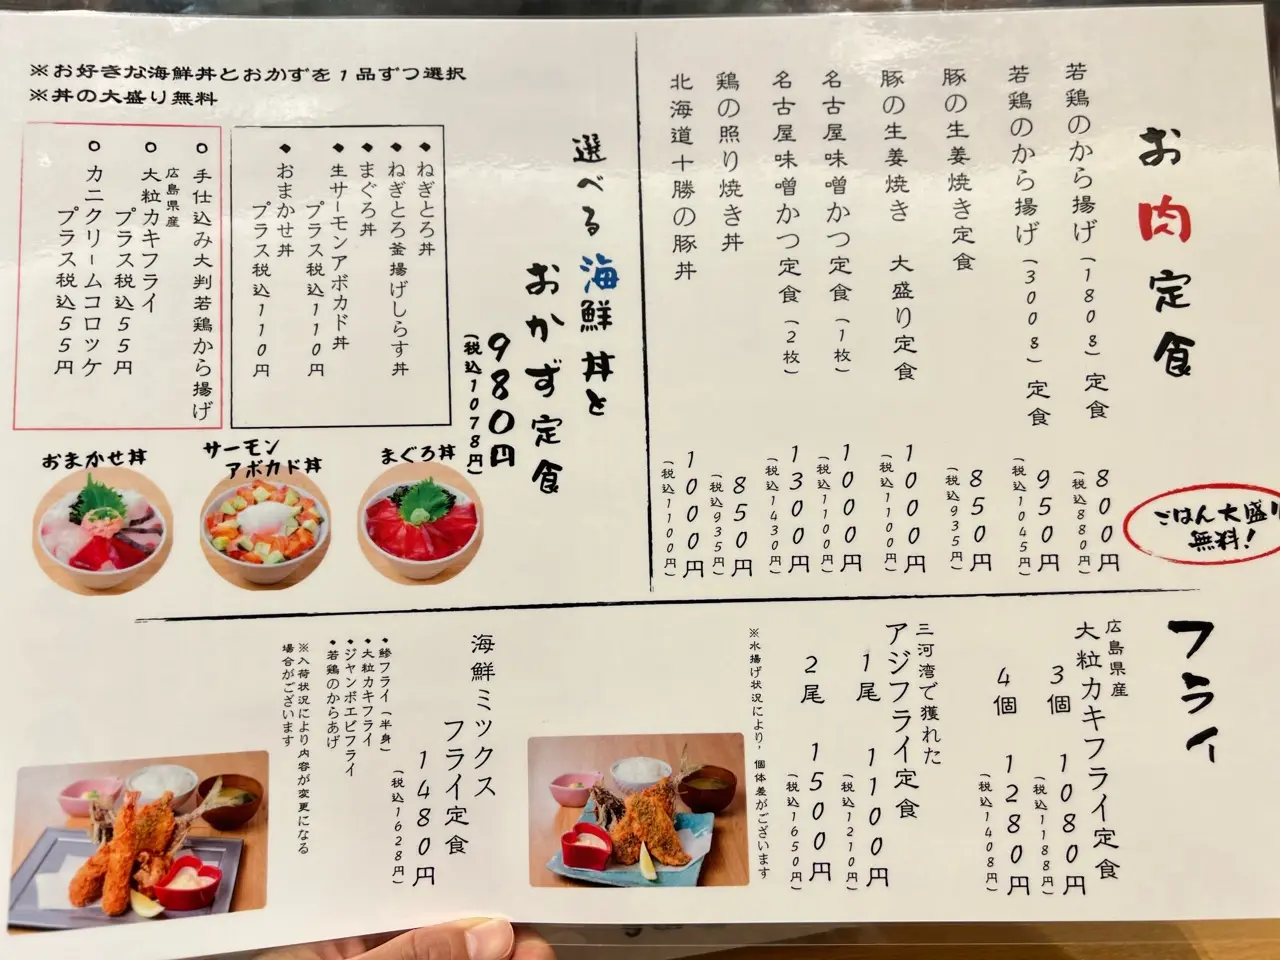 お肉定食
ごはん大盛り
無料!
若鶏のから揚げ(180g)定食
800円
(税込880円)
若鶏のから揚げ(300g)定食
950円
(税込1045円)
豚の生姜焼き定食
850円
(税込935円)
豚の生姜焼き 大盛り定食
1000円
(税込1100円)
名古屋味噌かつ定食(1枚)
1000円
(税込1100円)
名古屋味噌かつ定食(2枚)
1300円
(税込1430円)
鶏の照り焼き丼
850円
(税込935円)
北海道十勝の豚丼
1000円
(税込1100円)
選べる海鮮丼と
おかず定食
980円
(税込1078円)
※お好きな海鮮丼とおかずを1品ずつ選択
※丼の大盛り無料
◆ねぎとろ丼
◆ねぎとろ釜揚げしらす丼
◆まぐろ丼
◆生サーモンアボカド丼
プラス税込110円
◆おまかせ丼
プラス税込110円
○手仕込み大判若鶏から揚げ
広島県産
○大粒カキフライ
プラス税込55円
○カニクリームコロッケ
プラス税込55円
おまかせ丼
サーモン
アボカド丼
まぐろ丼
フライ
広島県産
大粒カキフライ定食
3個 1080円
(税込1188円)
4個 1280円
(税込1408円)
三河湾で獲れた
アジフライ定食
1尾 1100円
(税込1210円)
2尾 1500円
(税込1650円)
※水揚げ状況により、個体差がございます
海鮮ミックス
フライ定食
1480円
(税込1628円)
◆鯵フライ(半身)
◆大粒カキフライ
◆ジャンボエビフライ
◆若鶏のからあげ
※入荷状況により内容が変更になる
場合がございます